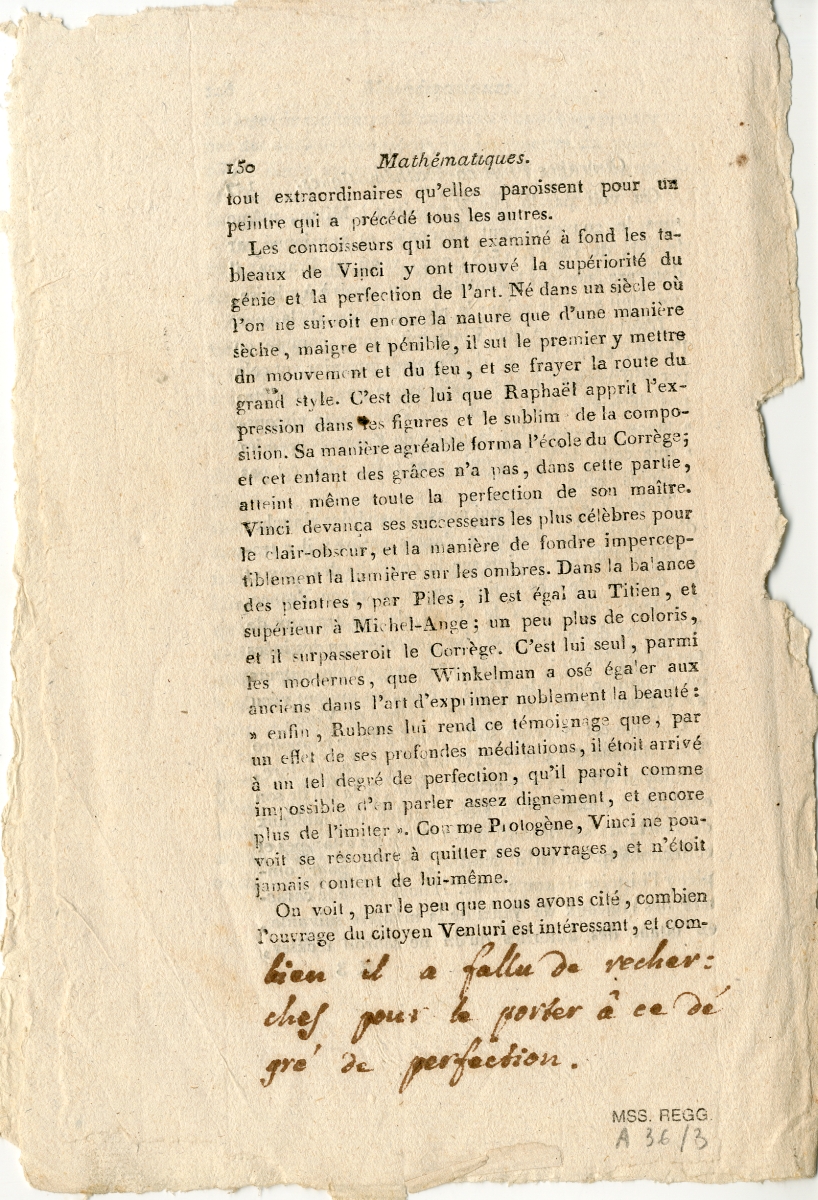 150 Mathématiques.
tout extraordinaires qu'elles paroissent pour un
peintre qui a précédé tous les autres.
Les connoisseurs qui ont examiné à fond les ta-
bleaux de Vinci y ont trouvé la supériorité du
génie et la perfection de l'art. Né dans un siècle où
l'on ne suivoit encore la nature que d'une manière
sèche, maigre et pénible, il sut le premier y mettre
dn mouvement et du feu, et se frayer la route du
grand style. C'est de lui que Raphaël apprit l'ex-
pression dans les figures et le sublim de la compo-
sition. Sa manière agréable forma l'école du Corrège;
et cet enfant des grâces n'a pas, dans cette partie,
atteint même toute la perfection de son maître.
Vinci devança ses successeurs les plus célèbres pour
le clair-obscur, et la manière de fondre impercep-
tiblement la lumière sur les ombres. Dans la balance
des peintres, par Piles, il est égal au Titien, et
supérieur à Michel-Ange; un peu plus de coloris,
et il surpasseroit le Corrège. C'est lui seul, parmi
les modernes, que Winkelman a osé égaler aux
anciens dans l'art d'exprimer noblement la beauté:
» enfin, Rubens lui rend ce témoignage que, par
un effet de ses profondes méditations, il étoit arrivé
à un tel degré de perfection, qu'il paroît comme
impossible d'en parler assez dignement, et encore
plus de l'imiter ». Comme Protogène, Vinci ne pou-
voit se résoudre à quitter ses ouvrages, et n'étoit
jamais content de lui-même.
On voit, par le peu que nous avons cité, combien
l'ouvrage du citoyen Venturi est intéressant, et com-
bien il a fallu de recher:
ches pour le porter â ce dé
gré de perfection.
MSS. REGG.
A 36/3